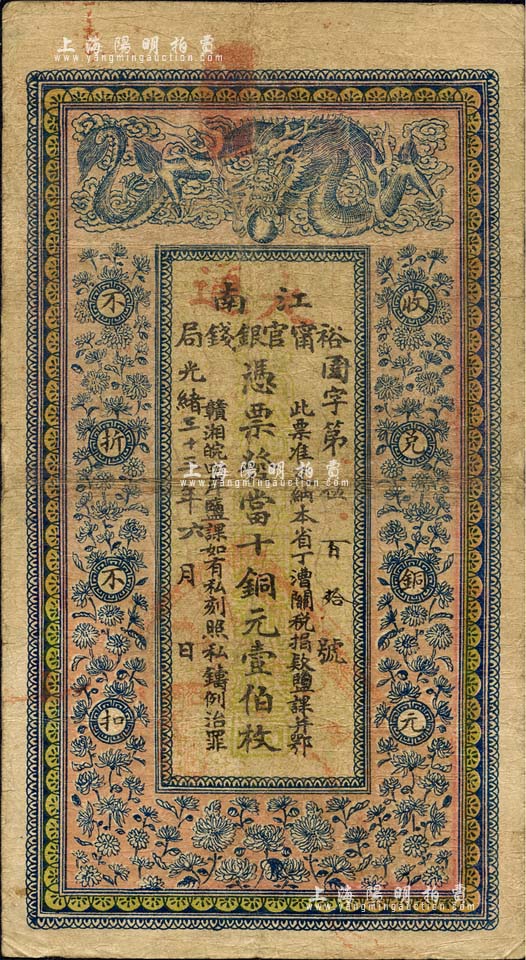 上海陽明拍賣
www.yangmingauction.com
江南
裕甯官銀錢局
國字第 百 拾 號
此票准 納本省丁漕關稅捐款鹽課并鄂
憑票發當十銅元壹伯枚
贛湘皖 鹽課如有私刻照私鑄例治罪
光緒三十 年六月 日
收兌銅元
不折不扣
上海陽明拍賣
www.yangmingauction.com
上海陽明拍賣
www.yangmingauction.com